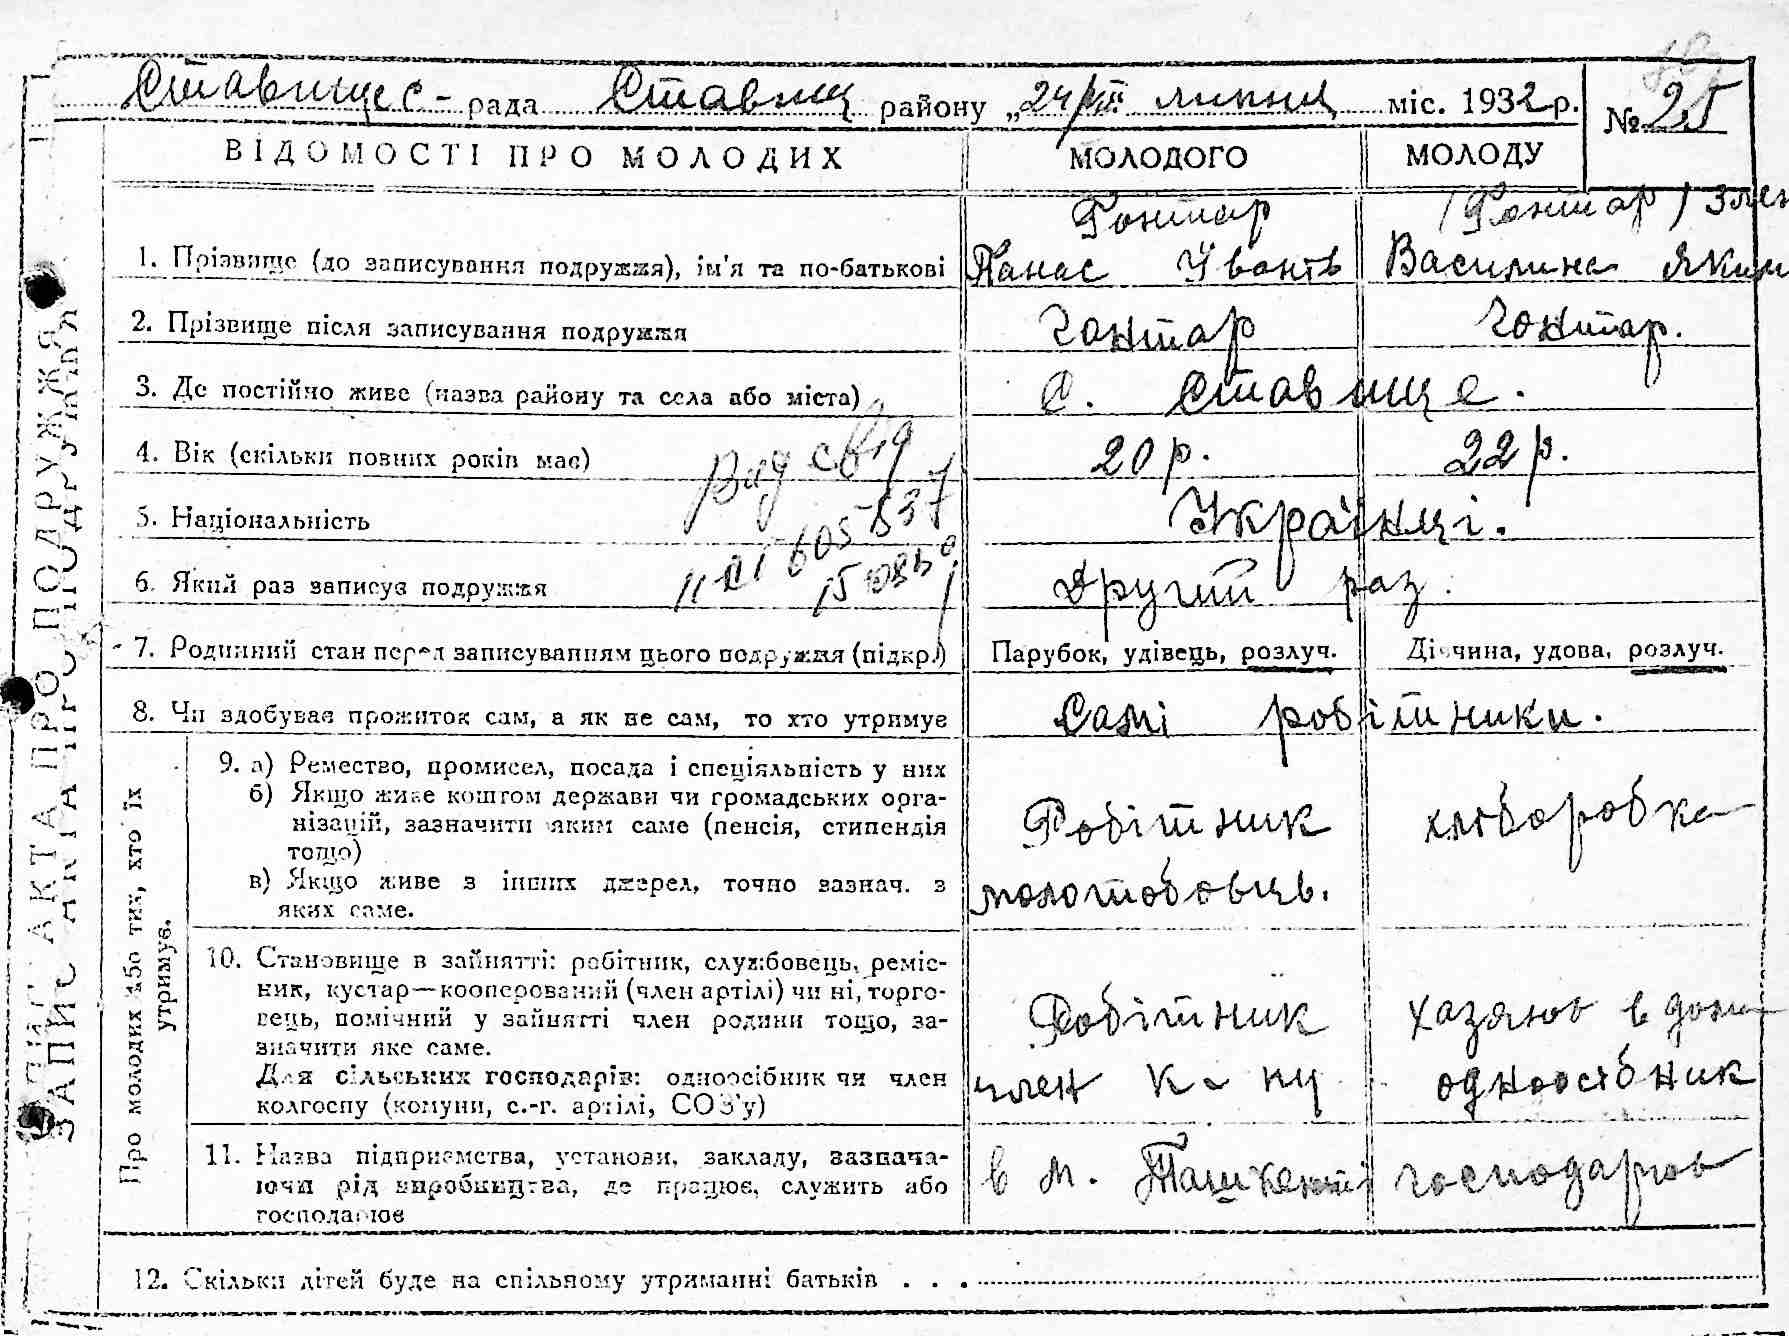 Ставищес- рада Ставищ району „24/VII липня міс. 1932 р. № 25
ВІДОМОСТІ ПРО МОЛОДИХ МОЛОДОГО МОЛОДУ
Гонтар (Гонтар)
1. Прізвище (до записування подружжя), ім'я та по-батькові Панас Іванів Василина Яким
2. Прізвище після записування подружжя Гонтар Гонтар.
3. Де постійно живе (назва району та села або міста) С. Ставище.
4. Вік (скільки повних років має) 20 р. 22 р.
Вид свід
5. Національність Українці.
6. Який раз записує подружжя Другий раз.
7. Родинний стан перед записуванням цього подружжя (підкр.) Парубок, удівець, розлуч. Дівчина, удова, розлуч.
8. Чи здобуває прожиток сам, а як не сам, то хто утримує Самі робітники.
Про молодих або тих, хто їх утримує.
9. а) Ремество, промисел, посада і спеціяльність у них
б) Якщо живе коштом держави чи громадських орга-
нізацій, зазначити яким саме (пенсія, стипендія
тощо)
в) Якщо живе з інших джерел, точно зазнач. з
яких саме.
Робітник
молотобовць.
хліборобка
10. Становище в зайнятті: робітник, службовець, реміс-
ник, кустар—кооперований (член артілі) чи ні, торго-
вець, помічний у зайнятті член родини тощо, за-
значити яке саме.
Для сільських господарів: одноосібник чи член
колгоспу (комуни, с.-г. артілі, СОЗ'у)
Робітник
член к-пу
хазяює в дома
одноосібник
11. Назва підприємства, установи, закладу, зазнача-
ючи рід виробництва, де працює, служить або
господарює
в м. Ташкенті
господарює
12. Скільки дітей буде на спільному утриманні батьків . . .
ЗАПИС АКТА ПРО ПОДРУЖЖЯ